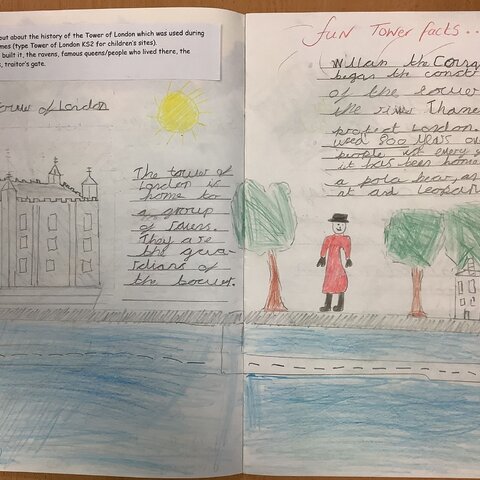 out about the history of the Tower of London which was used during
mes (type Tower of London KS2 for children's sites).
built it, the ravens, famous queens/people who lived there, the
s, traitor's gate.
Tower of London
The tower of
London is
home to
a group
of ravens.
They are
the gua-
rdians of
the tower.
fun Tower facts..
William the Conq
began the const
of the tower
the river Thame
protect London.
used 900 years
people
it has been home
a pola bear, an
and leopar